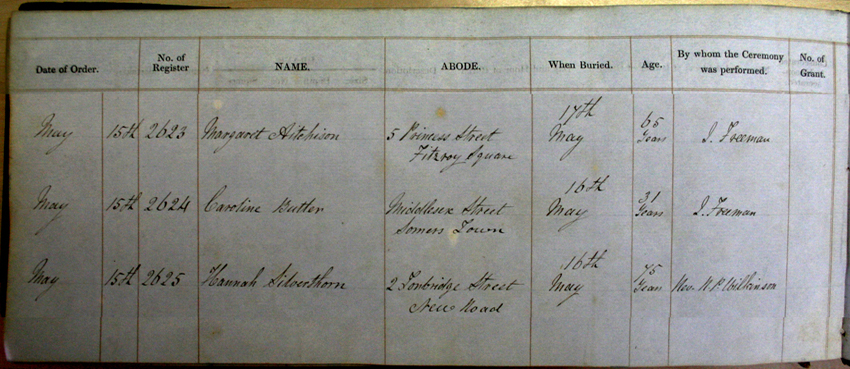 Date of Order. No. of Register NAME. ABODE. When Buried. Age. By whom the Ceremony was performed. No. of Grant.
17th 65
May 15th 2623 Margaret Aitchison 5 Princess Street May Years J. Freeman
Fitzroy Square
16th 31
May 15th 2624 Caroline Butler Middlesex Street May Years J. Freeman
Somers Town
16th 75
May 15th 2625 Hannah Silverthorn 2 Tonbridge Street May Years Rev. Wilkinson
New Road